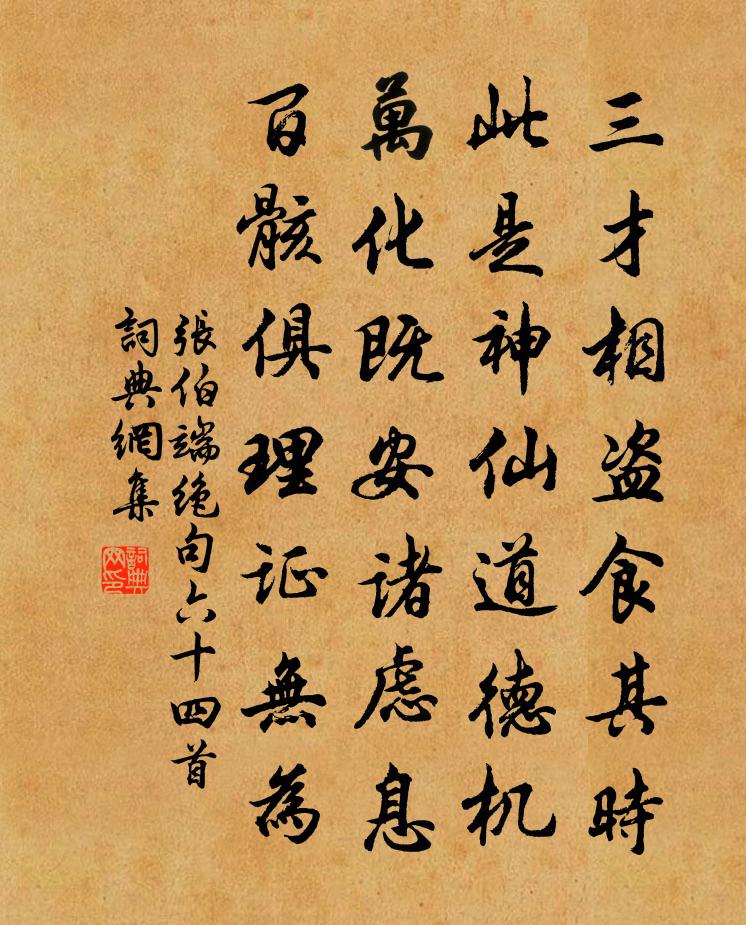 三才相盗食其時
此是神仙道德机
萬化既安諸慮息
百骸俱理证無為
張伯端絶句六十四首
詞典網集
詞典网印